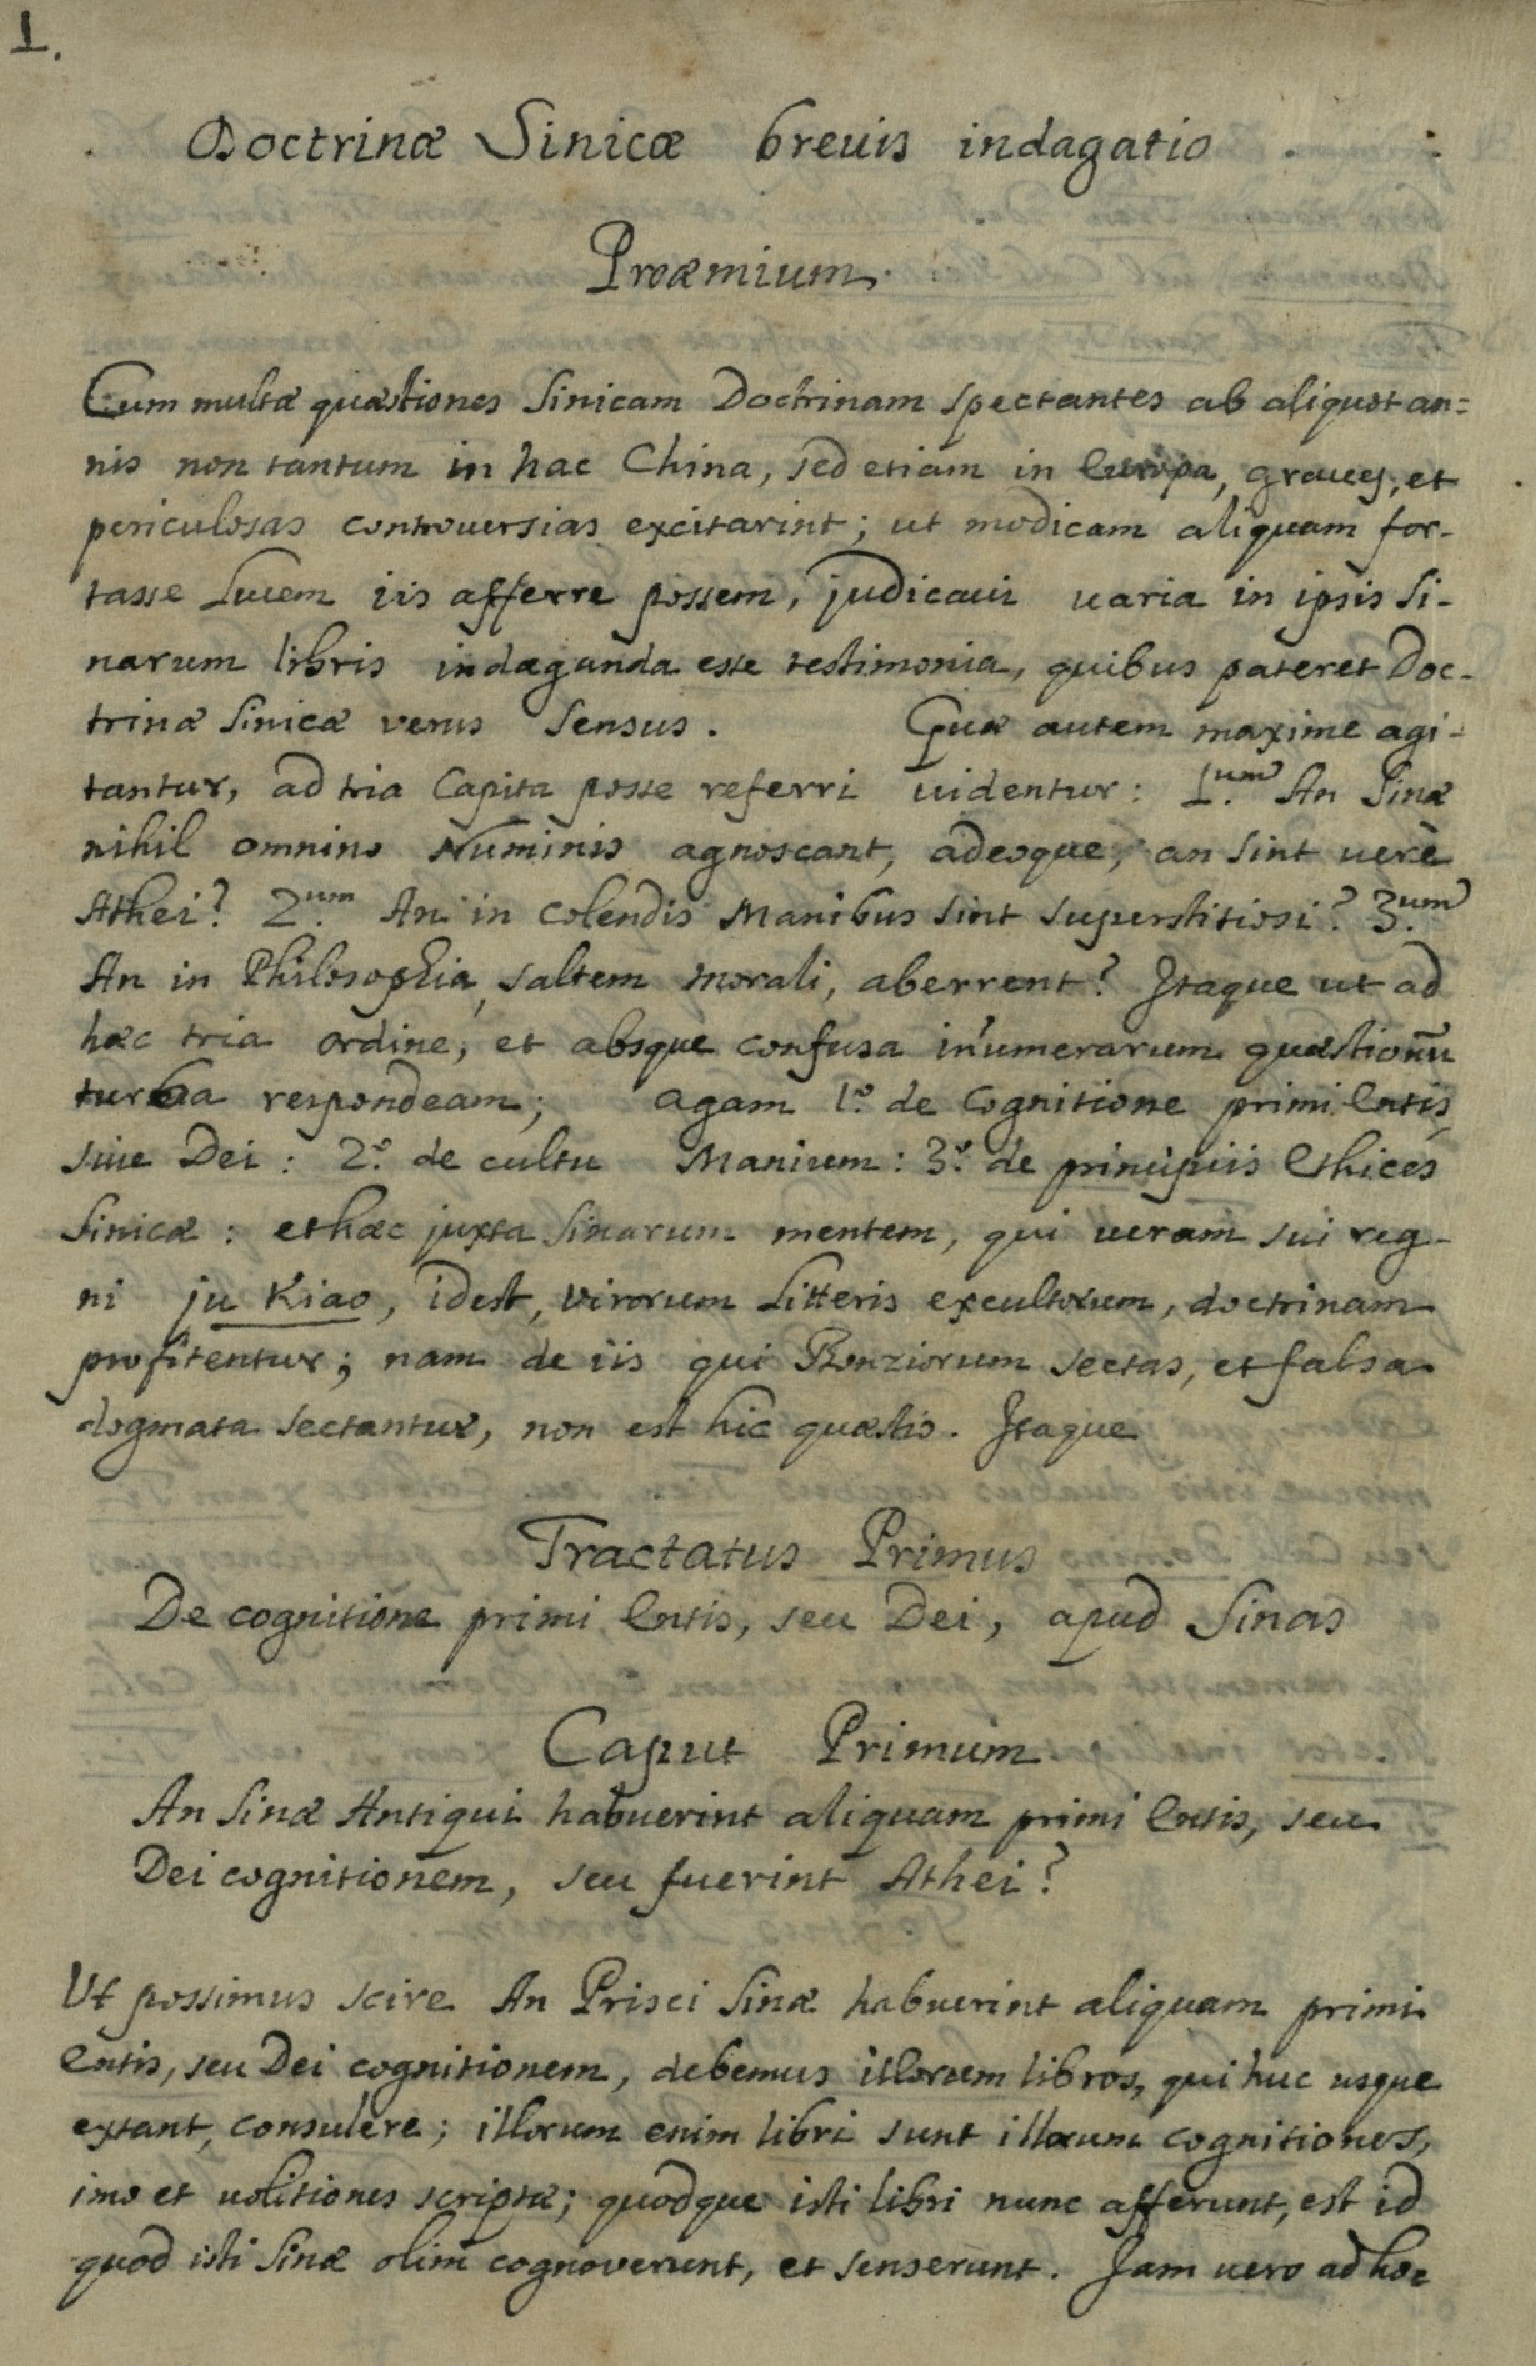 1.
Doctrinæ Sinicæ breuis indagatio
Proæmium.
Cum multæ quæstiones Sinicam Doctrinam spectantes ab aliquot an=
nis non tantum in hac China, sed etiam in Europa, graues, et
periculosas controuersias excitarint; ut modicam aliquam for-
tasse Lucem iis afferre possem, judicaui uaria in ipsis Si-
narum libris indaganda esse testimonia, quibus pateret Doc-
trinæ Sinicæ verus Sensus. Quæ autem maxime agi-
tantur, ad tria Capita posse referri uidentur: 1.um An Sinæ
nihil omnino Numinis agnoscant, adeoque, an sint uerè
Athei? 2.um An in colendis Manibus sint superstitiosi? 3.um
An in Philosophia, saltem morali, aberrent? Itaque ut ad
hæc tria ordine, et absque confusa in'umerarum quæstionũ
turba respondeam; agam 1.o de Cognitione primi Entis,
siue Dei: 2.o de cultu Manium: 3.o de principiis Ethices
Sinicæ: et hæc juxta Sinarum mentem, qui ueram sui reg-
ni ju Kiao, idest, virorum Litteris excultorum, doctrinam
profitentur; nam de iis qui Bonziorum sectas, et falsa
dogmata sectantur, non est hic quæstio. Itaque
Tractatus Primus
De cognitione primi Entis, seu Dei, apud Sinas
Caput Primum
An Sinæ Antiqui habuerint aliquam primi Entis, seu
Dei cognitionem, seu fuerint Athei?
Ut possimus scire An Prisci Sinæ habuerint aliquam primi
Entis, seu Dei cognitionem, debemus illorum libros, qui huc usque
extant, consulere; illorum enim libri sunt illorum cognitiones,
imo et uolitiones scriptæ; quodque isti libri nunc afferunt, est id
quod isti Sinæ olim cognoverunt, et senserunt. Jam uero ad hoc